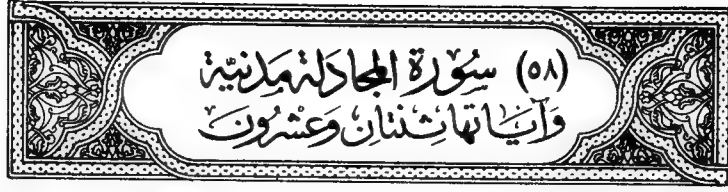 (٥٨) سُورَة المجادلة مَدنيَّة
وَآيَاتها ثِنتَان وَعشرُونَ